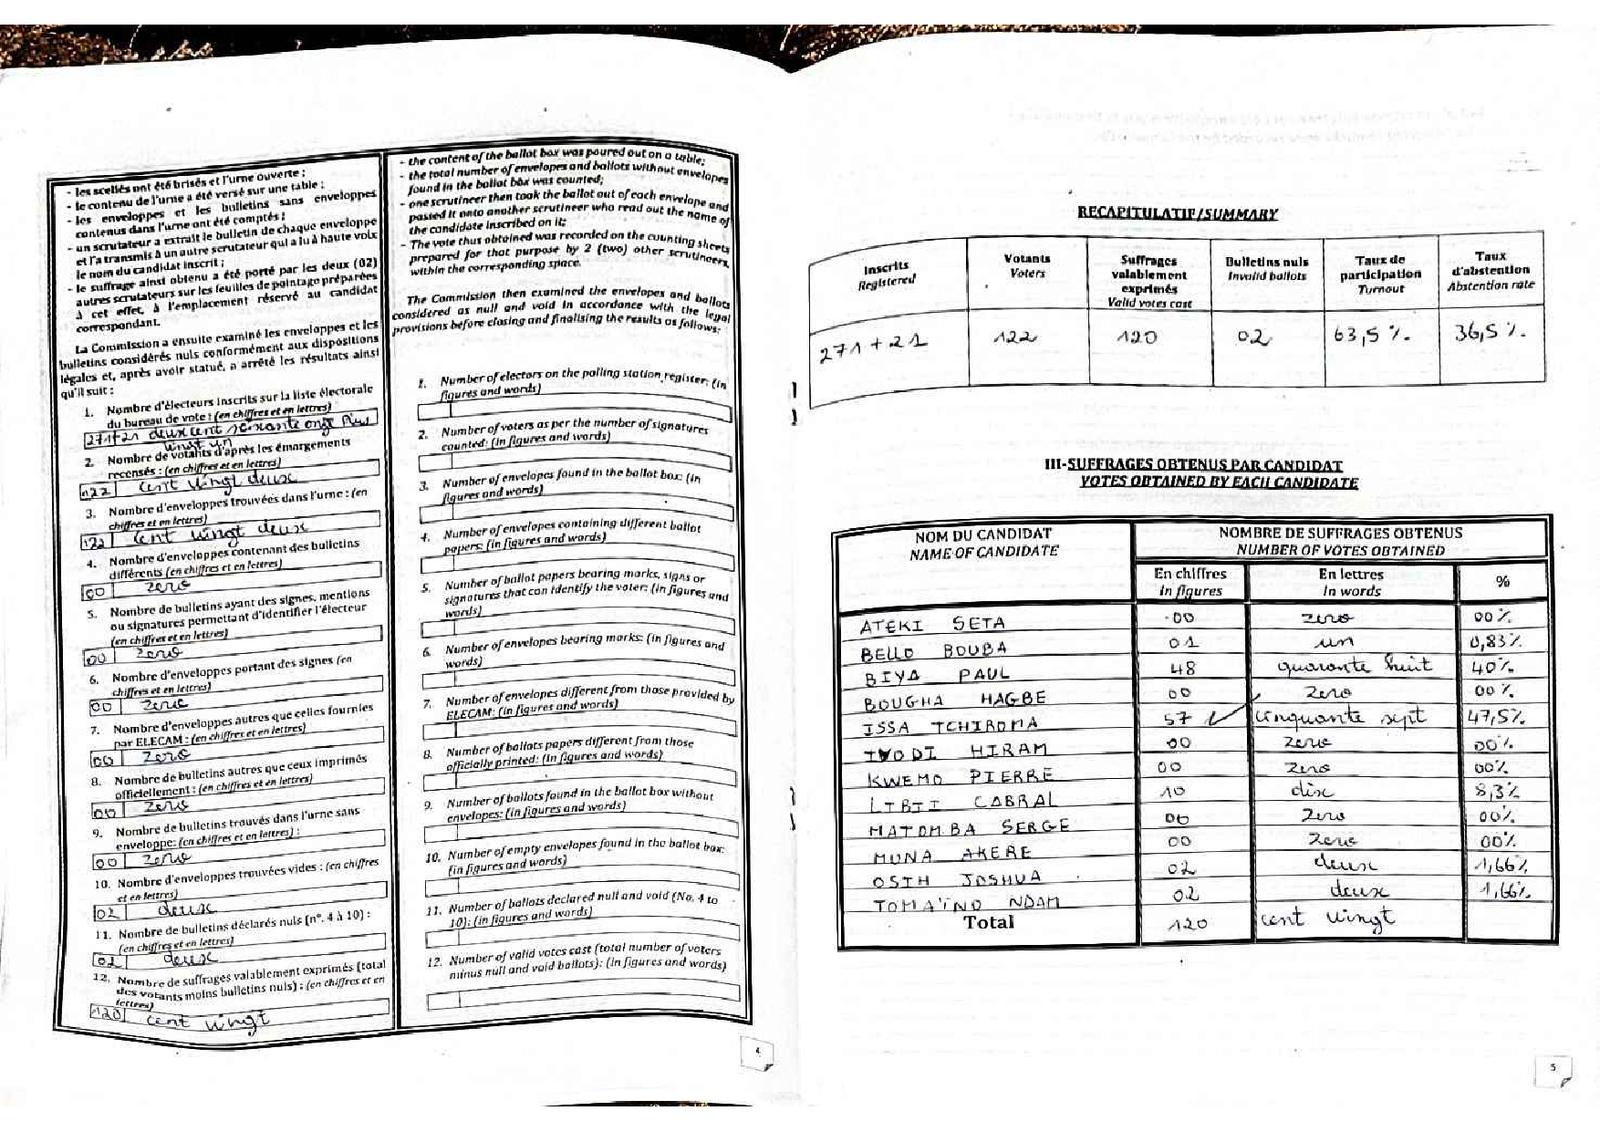 - les scellés ont été brisés et l'urne ouverte ;
- le contenu de l'urne a été versé sur une table ;
- les enveloppes et les bulletins sans enveloppes
contenus dans l'urne ont été comptés ;
- un scrutateur a extrait le bulletin de chaque enveloppe
et l'a transmis à un autre scrutateur qui a lu à haute voix
le nom du candidat inscrit ;
- le suffrage ainsi obtenu a été porté par les deux (02)
autres scrutateurs sur les feuilles de pointage préparées
à cet effet, à l'emplacement réservé au candidat
correspondant.
La Commission a ensuite examiné les enveloppes et les
bulletins considérés nuls conformément aux dispositions
légales et, après avoir statué, a arrêté les résultats ainsi
qu'il suit :
1. Nombre d'électeurs inscrits sur la liste électorale
du bureau de vote : (en chiffres et en lettres)
271+21 deux cent soixante onze plus
vingt un
2. Nombre de votants d'après les émargements
recensés : (en chiffres et en lettres)
122 cent vingt deux
3. Nombre d'enveloppes trouvées dans l'urne : (en
chiffres et en lettres)
122 cent vingt deux
4. Nombre d'enveloppes contenant des bulletins
différents (en chiffres et en lettres)
00 zero
5. Nombre de bulletins ayant des signes, mentions
ou signatures permettant d'identifier l'électeur
(en chiffres et en lettres)
00 zero
6. Nombre d'enveloppes portant des signes (en
chiffres et en lettres)
00 zero
7. Nombre d'enveloppes autres que celles fournies
par ELECAM : (en chiffres et en lettres)
00 zero
8. Nombre de bulletins autres que ceux imprimés
officiellement : (en chiffres et en lettres)
00 zero
9. Nombre de bulletins trouvés dans l'urne sans
enveloppe: (en chiffres et en lettres) :
00 zero
10. Nombre d'enveloppes trouvées vides : (en chiffres
et en lettres)
02 deux
11. Nombre de bulletins déclarés nuls (n°. 4 à 10) :
(en chiffres et en lettres)
02 deux
12. Nombre de suffrages valablement exprimés (total
des votants moins bulletins nuls) : (en chiffres et en
lettres)
120 cent vingt
- the content of the ballot box was poured out on a table;
- the total number of envelopes and ballots without envelopes
found in the ballot box was counted;
- one scrutineer then took the ballot out of each envelope and
passed it onto another scrutineer who read out the name of
the candidate inscribed on it;
- The vote thus obtained was recorded on the counting sheets
prepared for that purpose by 2 (two) other scrutineers,
within the corresponding space.
The Commission then examined the envelopes and ballots
considered as null and void in accordance with the legal
provisions before closing and finalising the results as follows:
1. Number of electors on the polling station register: (in
figures and words)
2. Number of voters as per the number of signatures
counted: (in figures and words)
3. Number of envelopes found in the ballot box: (in
figures and words)
4. Number of envelopes containing different ballot
papers: (in figures and words)
5. Number of ballot papers bearing marks, signs or
signatures that can identify the voter: (in figures and
words)
6. Number of envelopes bearing marks: (in figures and
words)
7. Number of envelopes different from those provided by
ELECAM: (in figures and words)
8. Number of ballots papers different from those
officially printed: (in figures and words)
9. Number of ballots found in the ballot box without
envelopes: (in figures and words)
10. Number of empty envelopes found in the ballot box:
(in figures and words)
11. Number of ballots declared null and void (No. 4 to
10): (in figures and words)
12. Number of valid votes cast (total number of voters
minus null and void ballots): (in figures and words)
4
RECAPITULATIF/SUMMARY
Inscrits Registered | Votants Voters | Suffrages valablement exprimés Valid votes cast | Bulletins nuls Invalid ballots | Taux de participation Turnout | Taux d'abstention Abstention rate
271 + 21 | 122 | 120 | 02 | 63,5 % | 36,5 %
III-SUFFRAGES OBTENUS PAR CANDIDAT
VOTES OBTAINED BY EACH CANDIDATE
NOM DU CANDIDAT NAME OF CANDIDATE | NOMBRE DE SUFFRAGES OBTENUS NUMBER OF VOTES OBTAINED
En chiffres in figures | En lettres In words | %
ATEKI SETA 00 zero 00%
BELLO BOUBA 01 un 0,83%
BIYA PAUL 48 quarante huit 40%
BOUGHA HAGBE 00 zero 00%
ISSA TCHIROMA 57 cinquante sept 47,5%
IYODI HIRAM 00 zero 00%
KWEMO PIERRE 00 zero 00%
LIBII CABRAL 10 dix 8,3%
MATOMBA SERGE 00 zero 00%
MUNA AKERE 00 zero 00%
OSIH JOSHUA 02 deux 1,66%
TOMAÏNO NDAM 02 deux 1,66%
Total 120 cent vingt
5